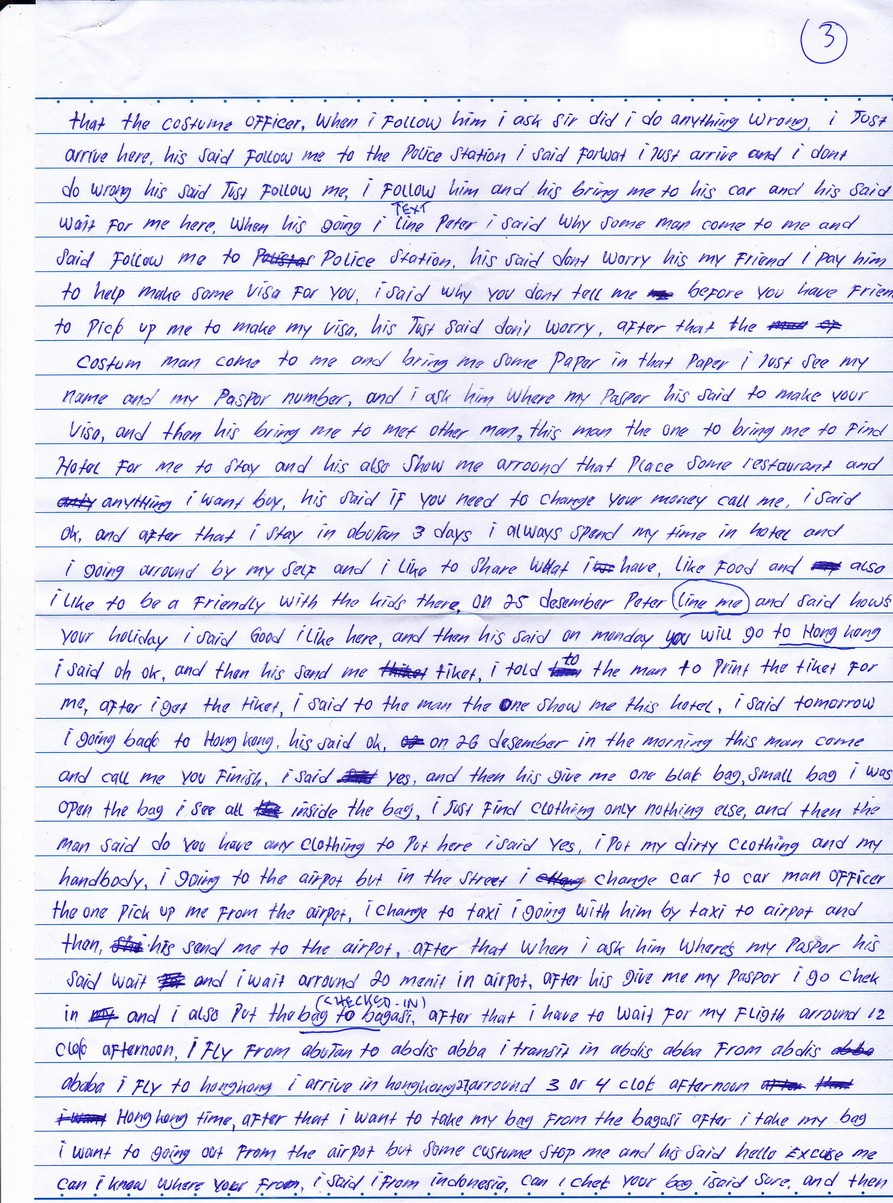 3
that the costume officer, when i follow him i ask sir did i do anything wrong, i Just
arrive here, his said follow me to the Police station i said forwat i Just arrive and i dont
do wrong his said Just follow me, i follow him and his bring me to his car and his said
TEXT
wait for me here, when his going i line Peter i said why some man come to me and
said follow me to Police station, his said dont worry his my friend i pay him
to help make some visa for you, i said why you dont tell me before you have frien
to pick up me to make my visa, his Just said don't worry, after that the
costum man come to me and bring me some paper in that paper i Just see my
name and my Paspor number, and i ask him where my Paspor his said to make your
visa, and then his bring me to met other man, this man the one to bring me to find
Hotel for me to stay and his also show me arround that place some restaurant and
anything i want buy, his said if you need to change your money call me, i said
ok, and after that i stay in abuJan 3 days i always spend my time in hotel and
i going arround by my self and i like to share what i have, like food and also
i like to be a friendly with the kids there, on 25 desember Peter line me and said hows
your holiday i said Good i like here, and then his said on monday you will go to Hong kong
i said oh ok, and then his send me tiket, i told to the man to print the tiket for
me, after i get the tiket, i said to the man the one show me this hotel, i said tomorrow
i going back to Hong kong, his said ok, on 26 desember in the morning this man come
and call me you finish, i said yes, and then his give me one blak bag, small bag i was
open the bag i see all inside the bag, i Just find clothing only nothing else, and then the
man said do you have any clothing to put here i said yes, i put my dirty clothing and my
handbody, i going to the airpot but in the street i change car to car man officer
the one pick up me from the airpot, i change to taxi i going with him by taxi to airpot and
than, his send me to the airpot, after that when i ask him where's my Paspor his
said wait and i wait arround 20 menit in airpot, after his give me my Paspor i go chek
(CHECKED-IN)
in and i also put the bag to bagasi, after that i have to wait for my fligth arround 12
clok afternoon, i fly from abuJan to abdis abba i transit in abdis abba from abdis
ababa i fly to hongkong i arrive in hongkong arround 3 or 4 clok afternoon
Hong kong time, after that i want to take my bag from the bagasi after i take my bag
i want to going out from the airpot but some custume stop me and his said hello excuse me
can i know where your from, i said i from indonesia, can i chek your bag i said sure, and then